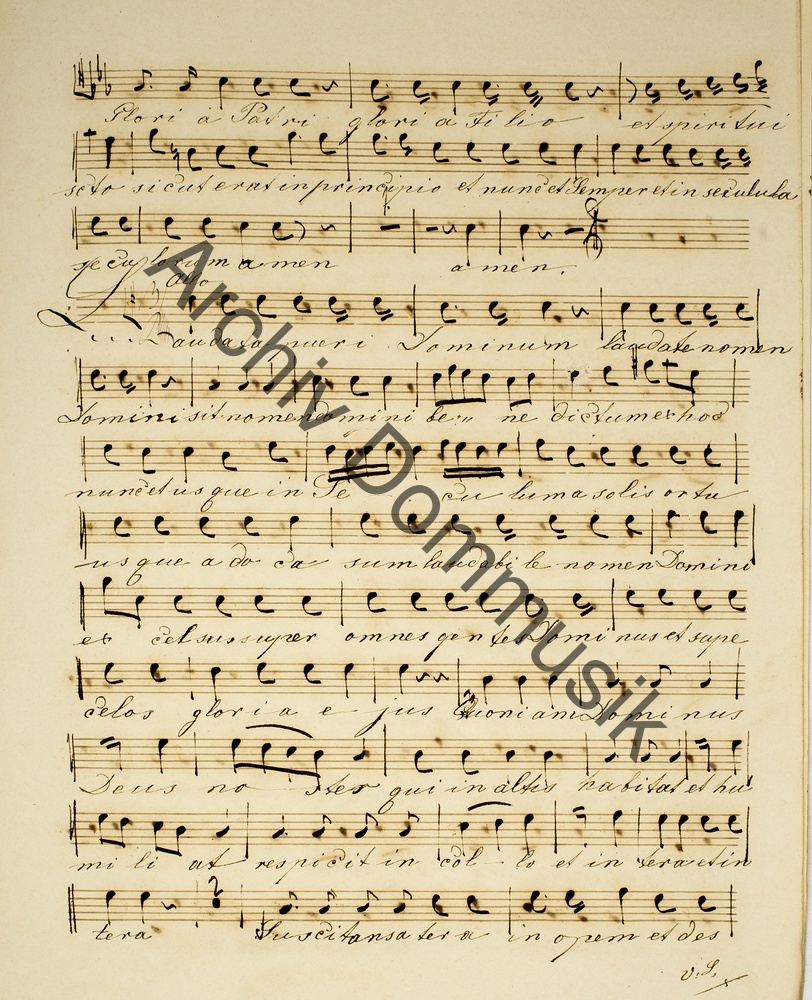 Glori a Patri glori a Fi li o et spiri tu i
scto si cut erat in principio et nunc et Semper et in seculula
secu lorum amen a men.
allo
Laudate pueri Dominum laudate nomen
Domini sit nomen domini be ne dictum ex hoc
nunc et us que in Se cu lum a solis or tu
us que a do ca sum laudabi le no men Domini
ex cel sus super omnes gen tes Domi nus et supe
celos glori a e jus Quoni am Domi nus
Deus no ster qui in altis habitat et hu
mi li at respicit in cœl lo et in tera et in
tera Suscitans a ter a in opem et des
v. S.
Archiv Dommusik